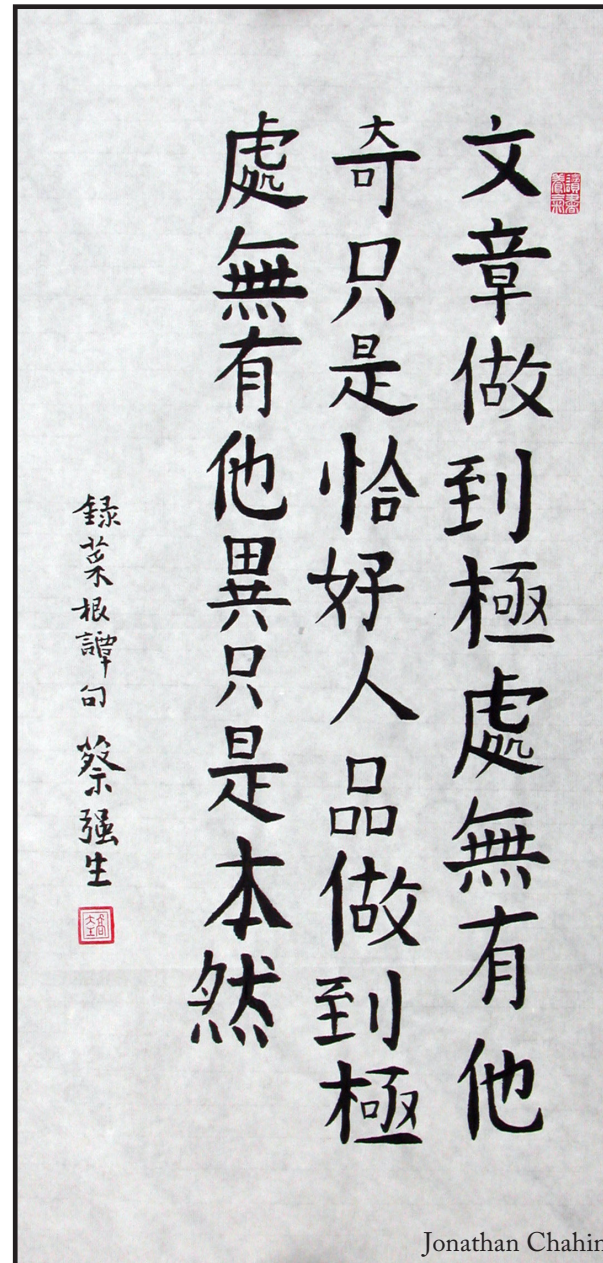 文章做到極處無有他
奇只是恰好人品做到極
處無有他異只是本然
録菜根譚句 蔡强生
Jonathan Chahin